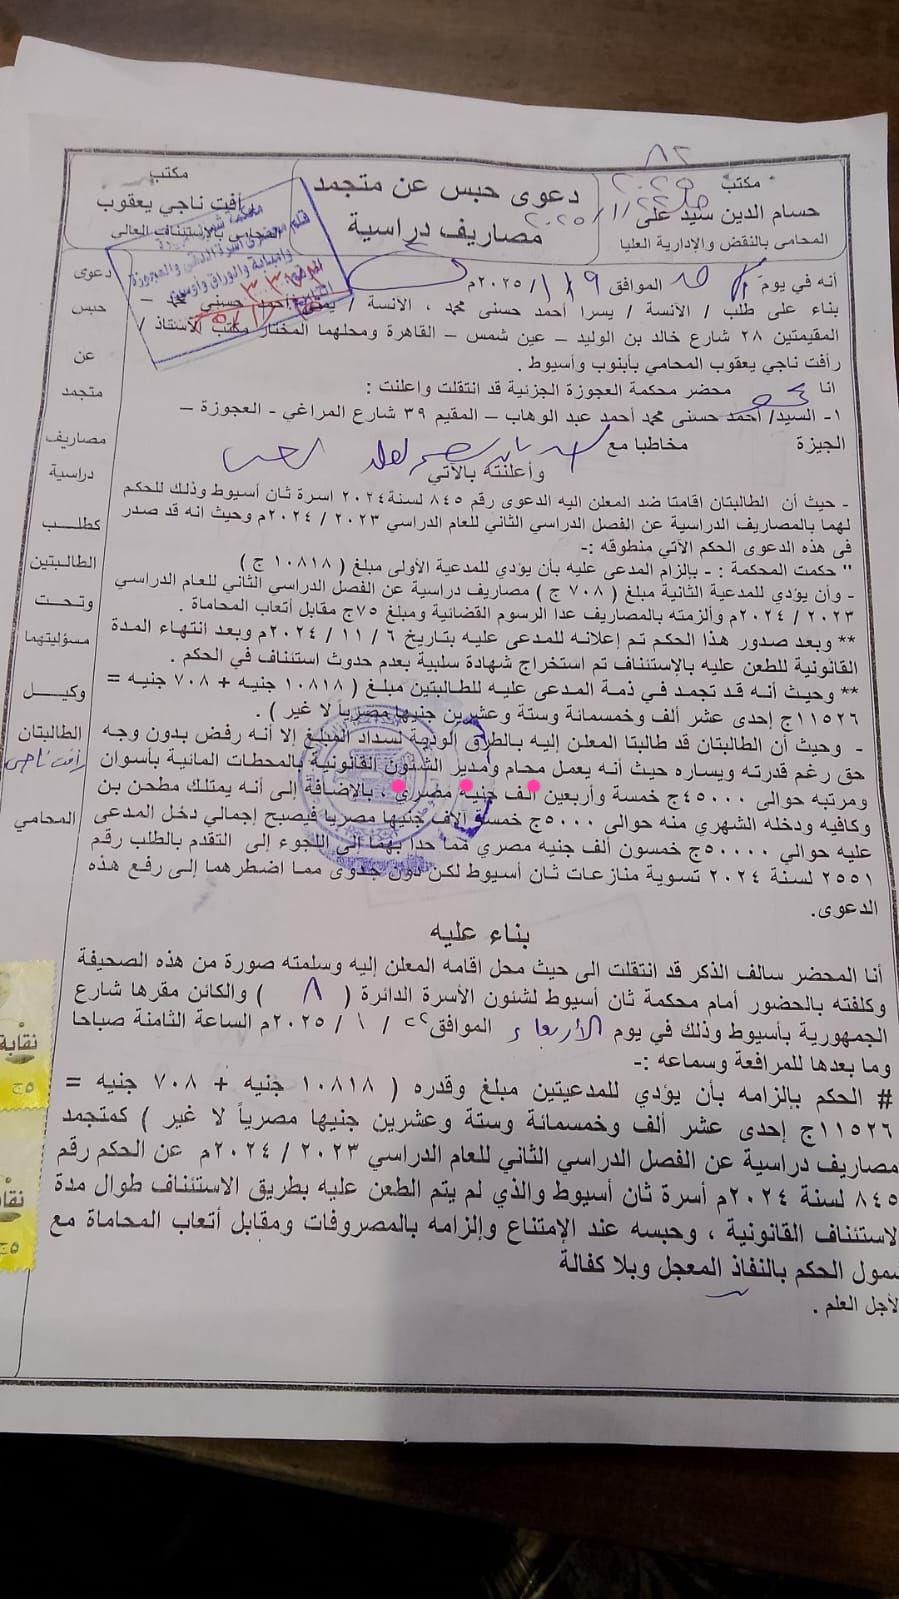 مكتب
حسام الدين سيد على
المحامى بالنقض والإدارية العليا
دعوى حبس عن متجمد
مصاريف دراسية
مكتب
رأفت ناجي يعقوب
المحامي بالاستئناف العالى
أنه في يوم الموافق ١٩ / ١ / ٢٠٢٥م
بناء على طلب / الآنسة / يسرا أحمد حسنى محمد ، الآنسة / يمنى أحمد حسني محمد –
المقيمتين ٢٨ شارع خالد بن الوليد – عين شمس – القاهرة ومحلهما المختار مكتب الأستاذ /
رأفت ناجي يعقوب المحامي بأبنوب وأسيوط .
انا محضر محكمة العجوزة الجزئية قد انتقلت واعلنت :
١- السيد/ أحمد حسنى محمد أحمد عبد الوهاب – المقيم ٣٩ شارع المراغي - العجوزة –
الجيزة مخاطبا مع
وأعلنته بالآتي
- حيث أن الطالبتان اقامتا ضد المعلن اليه الدعوى رقم ٨٤٥ لسنة ٢٠٢٤ اسرة ثان أسيوط وذلك للحكم
لهما بالمصاريف الدراسية عن الفصل الدراسي الثاني للعام الدراسي ٢٠٢٣ / ٢٠٢٤م وحيث انه قد صدر
فى هذه الدعوى الحكم الآتي منطوقه :-
" حكمت المحكمة : - بإلزام المدعى عليه بأن يؤدي للمدعية الأولى مبلغ ( ١٠٨١٨ ج )
- وأن يؤدي للمدعية الثانية مبلغ ( ٧٠٨ ج ) مصاريف دراسية عن الفصل الدراسي الثاني للعام الدراسي
٢٠٢٣ / ٢٠٢٤م وألزمته بالمصاريف عدا الرسوم القضائية ومبلغ ٧٥ج مقابل أتعاب المحاماة .
** وبعد صدور هذا الحكم تم إعلانه للمدعى عليه بتاريخ ٦ / ١١ / ٢٠٢٤م وبعد انتهاء المدة
القانونية للطعن عليه بالإستئناف تم استخراج شهادة سلبية بعدم حدوث استئناف في الحكم .
** وحيث أنه قد تجمد في ذمة المدعى عليه للطالبتين مبلغ ( ١٠٨١٨ جنيه + ٧٠٨ جنيه =
١١٥٢٦ج إحدى عشر ألف وخمسمائة وستة وعشرين جنيها مصرياً لا غير ) .
- وحيث أن الطالبتان قد طالبتا المعلن إليه بالطرق الودية لسداد المبلغ إلا أنه رفض بدون وجه
حق رغم قدرته ويساره حيث أنه يعمل محام ومدير الشئون القانونية بالمحطات المائية بأسوان
ومرتبه حوالى ٤٥٠٠٠ج خمسة وأربعين ألف جنيه مصري ، بالإضافة إلى أنه يمتلك مطحن بن
وكافيه ودخله الشهري منه حوالى ٥٠٠٠ج خمسة آلاف جنيها مصريا فيصبح إجمالي دخل المدعى
عليه حوالي ٥٠٠٠٠ج خمسون ألف جنيه مصري مما حدا بهما إلى اللجوء إلى التقدم بالطلب رقم
٢٥٥١ لسنة ٢٠٢٤ تسوية منازعات ثان أسيوط لكن دون جدوى مما اضطرهما إلى رفع هذه
الدعوى.
بناء عليه
أنا المحضر سالف الذكر قد انتقلت الى حيث محل اقامه المعلن إليه وسلمته صورة من هذه الصحيفة
وكلفته بالحضور أمام محكمة ثان أسيوط لشئون الأسرة الدائرة ( ٨ ) والكائن مقرها شارع
الجمهورية بأسيوط وذلك في يوم الأربعاء الموافق ٢٢ / ١ / ٢٠٢٥م الساعة الثامنة صباحا
وما بعدها للمرافعة وسماعه :-
# الحكم بإلزامه بأن يؤدي للمدعيتين مبلغ وقدره ( ١٠٨١٨ جنيه + ٧٠٨ جنيه =
١١٥٢٦ج إحدى عشر ألف وخمسمائة وستة وعشرين جنيها مصرياً لا غير ) كمتجمد
مصاريف دراسية عن الفصل الدراسي الثاني للعام الدراسي ٢٠٢٣ / ٢٠٢٤م عن الحكم رقم
٨٤٥ لسنة ٢٠٢٤م أسرة ثان أسيوط والذي لم يتم الطعن عليه بطريق الاستئناف طوال مدة
لاستئناف القانونية ، وحبسه عند الإمتناع وإلزامه بالمصروفات ومقابل أتعاب المحاماة مع
سمول الحكم بالنفاذ المعجل وبلا كفالة
لأجل العلم .
دعوى
حبس
عن
متجمد
مصاريف
دراسية
كطلب
الطالبتين
وتحت
مسؤليتهما
وكيل
الطالبتان
رأفت ناجى
المحامي
نقابة
٥ج
نقابة
٥ج